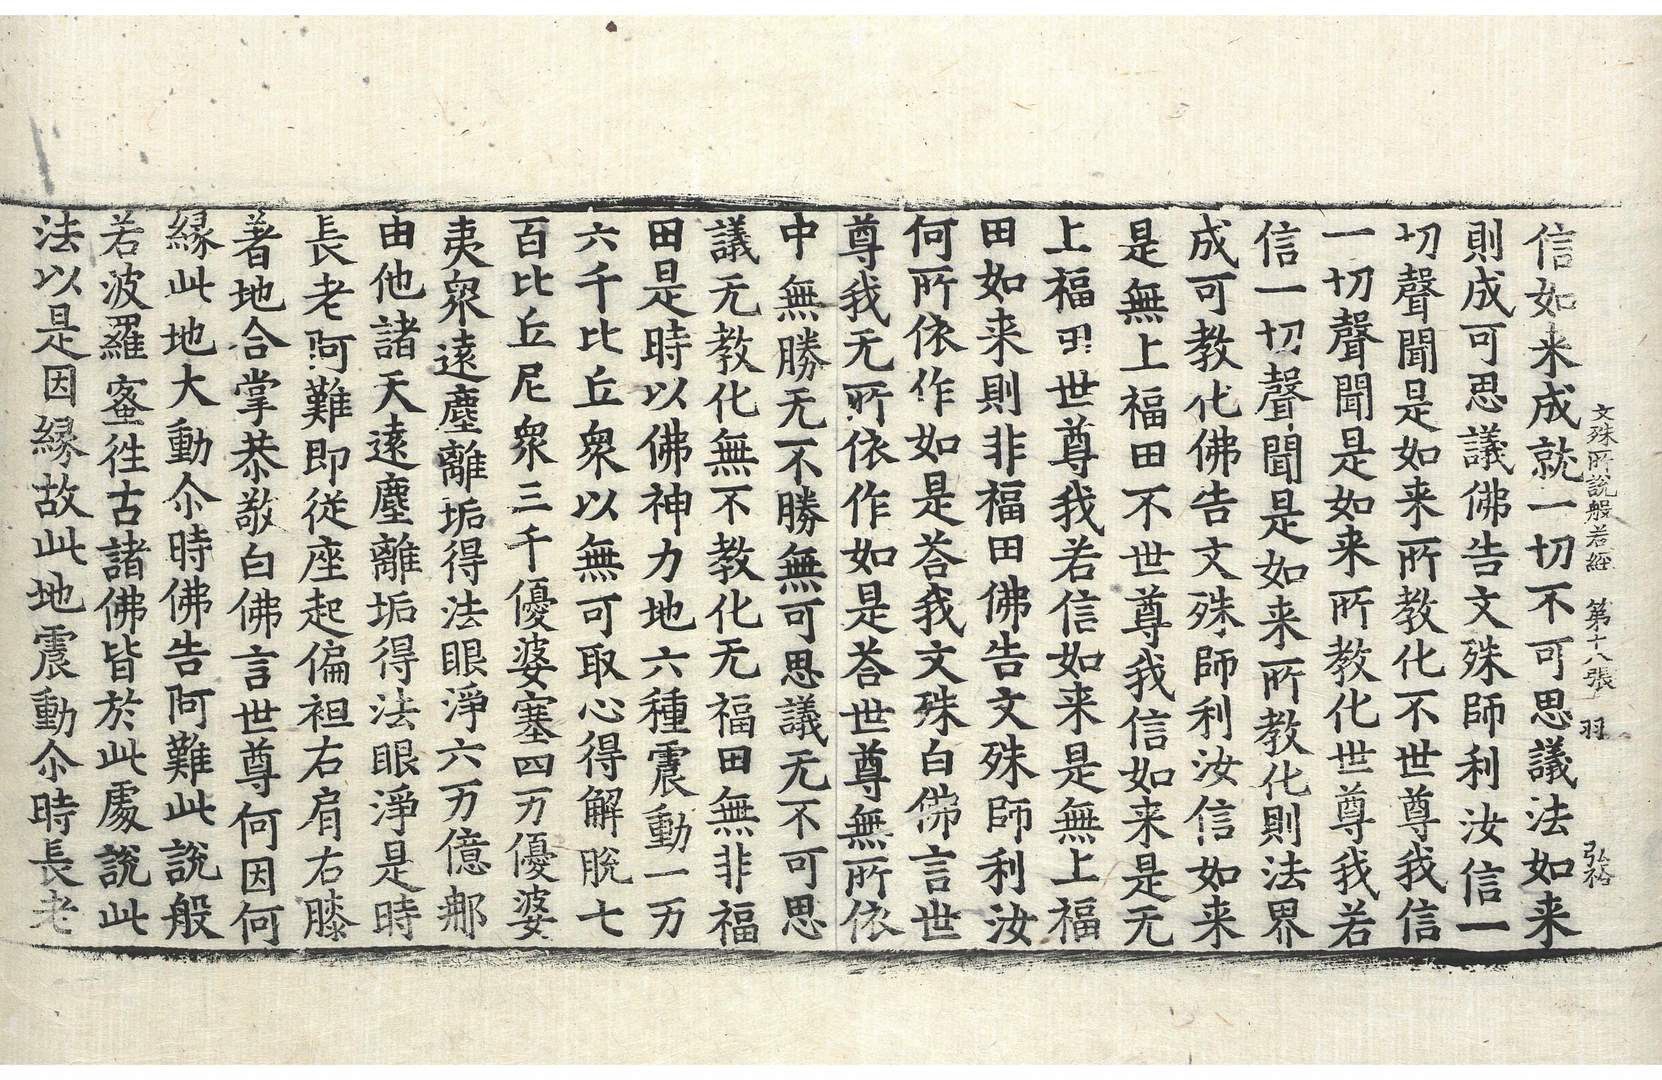 文殊所說般若經 第十八張 羽 弘裕
信如来成就一切不可思議法如来
則成可思議佛告文殊師利汝信一
切聲聞是如来所教化不世尊我信
一切聲聞是如来所教化世尊我若
信一切聲聞是如来所教化則法界
成可教化佛告文殊師利汝信如来
是無上福田不世尊我信如来是无
上福田世尊我若信如来是無上福
田如来則非福田佛告文殊師利汝
何所依作如是荅我文殊白佛言世
尊我无所依作如是荅世尊無所依
中無勝无不勝無可思議无不可思
議无教化無不教化无福田無非福
田是時以佛神力地六種震動一万
六千比丘衆以無可取心得解脫七
百比丘尼衆三千優婆塞四万優婆
夷衆遠塵離垢得法眼淨六万億那
由他諸天遠塵離垢得法眼淨是時
長老阿難即從座起偏袒右肩右膝
著地合掌恭敬白佛言世尊何因何
縁此地大動尒時佛告阿難此說般
若波羅蜜徃古諸佛皆於此處說此
法以是因縁故此地震動尒時長老